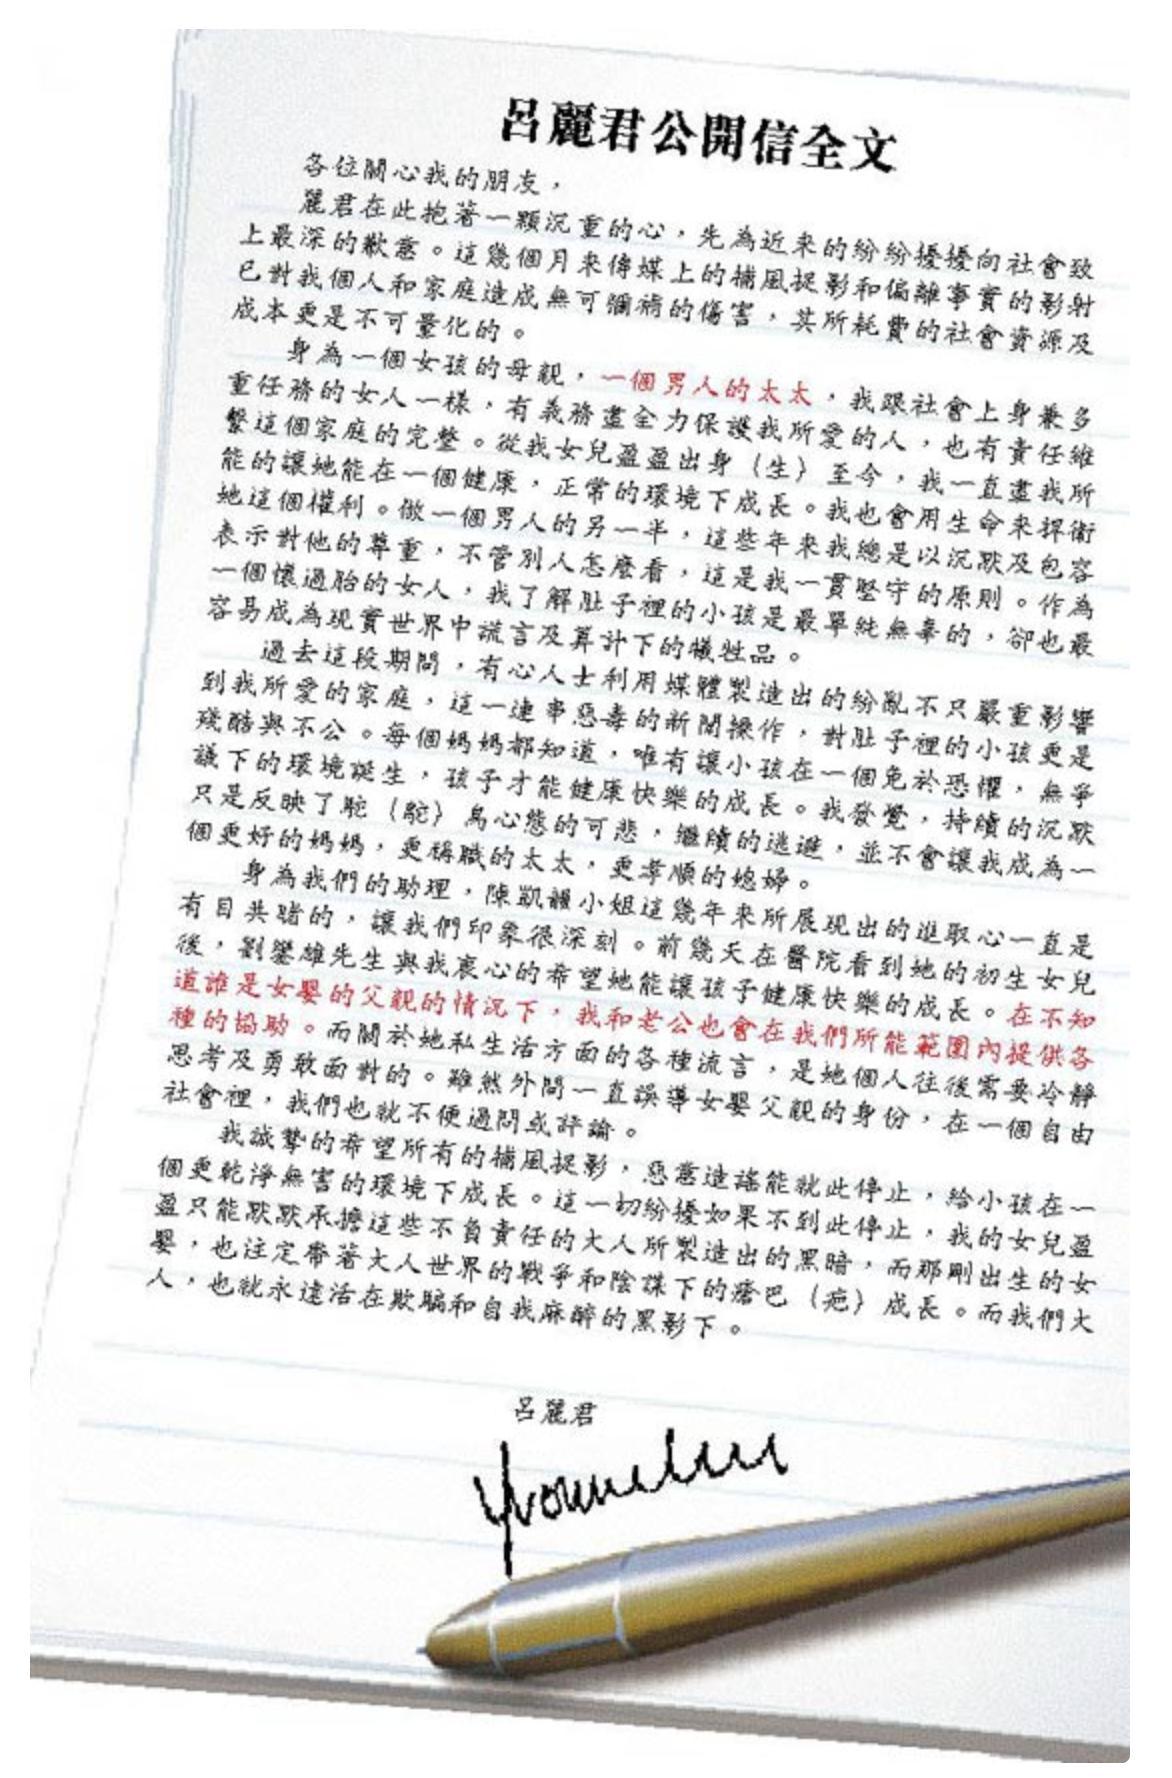 呂麗君公開信全文
各位關心我的朋友，
麗君在此抱著一顆沉重的心，先為近來的紛紛擾擾向社會致
上最深的歉意。這幾個月來傳媒上的捕風捉影和偏離事實的影射
已對我個人和家庭造成無可彌補的傷害，其所耗費的社會資源及
成本更是不可量化的。
身為一個女孩的母親，一個男人的太太，我跟社會上身兼多
重任務的女人一樣，有義務盡全力保護我所愛的人，也有責任維
繫這個家庭的完整。從我女兒盈盈出身（生）至今，我一直盡我所
能的讓她能在一個健康，正常的環境下成長。我也會用生命來捍衛
她這個權利。做一個男人的另一半，這些年來我總是以沉默及包容
表示對他的尊重，不管別人怎麼看，這是我一貫堅守的原則。作為
一個懷過胎的女人，我了解肚子裡的小孩是最單純無辜的，卻也最
容易成為現實世界中謊言及算計下的犧牲品。
過去這段期間，有心人士利用媒體製造出的紛亂不只嚴重影響
到我所愛的家庭，這一連串惡毒的新聞操作，對肚子裡的小孩更是
殘酷與不公。每個媽媽都知道，唯有讓小孩在一個免於恐懼，無爭
議下的環境誕生，孩子才能健康快樂的成長。我發覺，持續的沉默
只是反映了駝（鴕）鳥心態的可悲，繼續的逃避，並不會讓我成為一
個更好的媽媽，更稱職的太太，更孝順的媳婦。
身為我們的助理，陳凱韻小姐這幾年來所展現出的進取心一直是
有目共睹的，讓我們印象很深刻。前幾天在醫院看到她的初生女兒
後，劉鑾雄先生與我衷心的希望她能讓孩子健康快樂的成長。在不知
道誰是女嬰的父親的情況下，我和老公也會在我們所能範圍內提供各
種的協助。而關於她私生活方面的各種流言，是她個人往後需要冷靜
思考及勇敢面對的。雖然外間一直誤導女嬰父親的身份，在一個自由
社會裡，我們也就不便過問或評論。
我誠摯的希望所有的捕風捉影，惡意造謠能就此停止，給小孩在一
個更乾淨無害的環境下成長。這一切紛擾如果不到此停止，我的女兒盈
盈只能默默承擔這些不負責任的大人所製造出的黑暗，而那剛出生的女
嬰，也注定帶著大人世界的戰爭和陰謀下的瘡巴（疤）成長。而我們大
人，也就永遠活在欺騙和自我麻醉的黑影下。
呂麗君